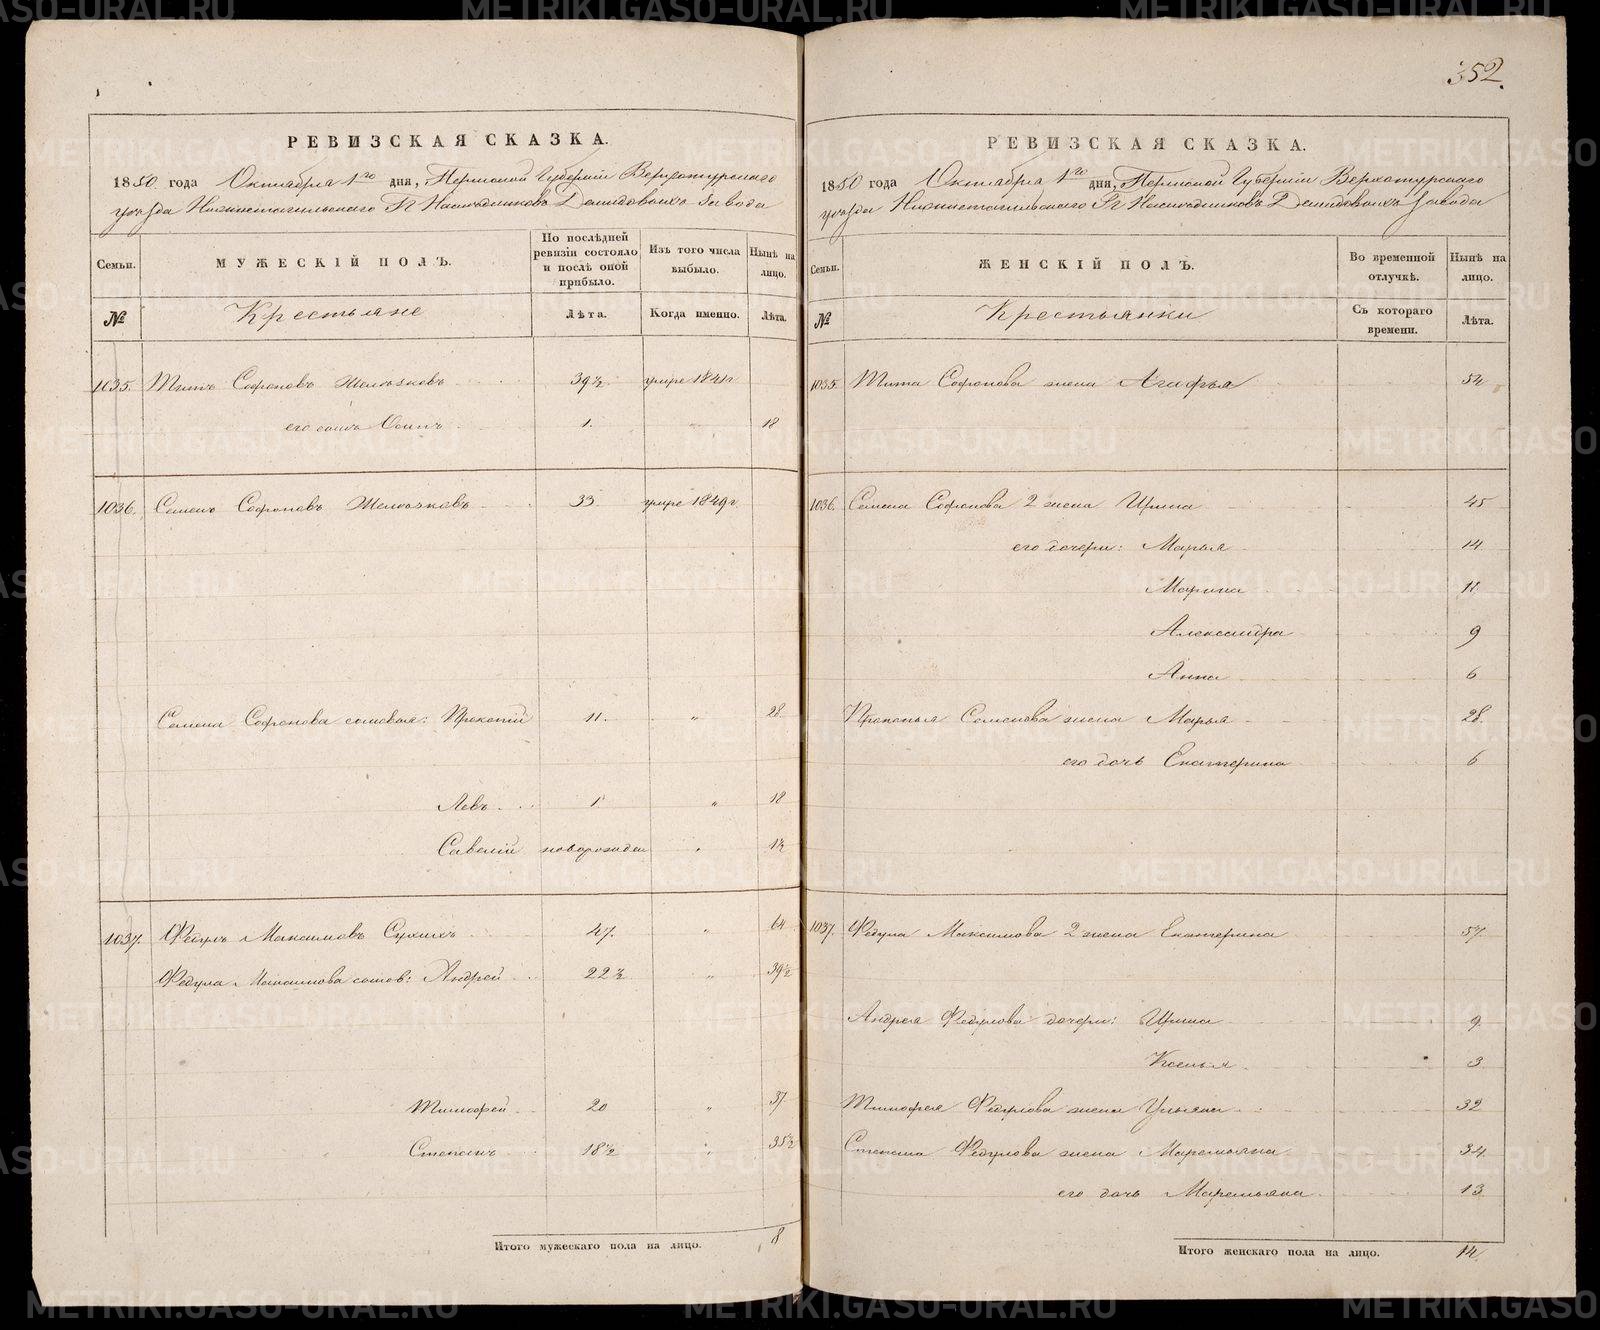 352.
РЕВИЗСКАЯ СКАЗКА.
1850 года Октября 1го дня, Пермской Губернии Верхотурского
уѣзда Нижнетагильского Гг. Наслѣдниковъ Демидовыхъ завода
Семьи.
МУЖЕСКІЙ ПОЛЪ.
По послѣдней ревизіи состояло и послѣ оной прибыло.
Изъ того числа выбыло.
Нынѣ на лицо.
№
Крестьяне
Лѣта.
Когда именно.
Лѣта.
1035. Титъ Софроновъ 39½ умре 1841г
его сынъ Осипъ 1. 18
1036. Семенъ Софроновъ 33 умре 1849г.
Семена Софронова сыновья: Прокопій 11. „ 28
Левъ 1 „ 18
Савелій новорожден „ 1½
1037. Федулъ Максимовъ Сухихъ 47. „ 64
Федула Максимова сынов: Андрей 22½ „ 39½
Тимофей 20 „ 37
Степанъ 18½ „ 35½
Итого мужескаго пола на лицо. 8
РЕВИЗСКАЯ СКАЗКА.
1850 года Октября 1го дня, Пермской Губерніи Верхотурского
уѣзда Нижнетагильского Гг. Наслѣдниковъ Демидовыхъ завода
Семьи.
ЖЕНСКІЙ ПОЛЪ.
Во временной отлучкѣ.
Нынѣ на лицо.
№
Крестьянки
Съ котораго времени.
Лѣта.
1035. Тита Софронова жена Агафья 54
1036. Семена Софронова 2 жена Ирина 45
его дочери: Марья 14
Марина 11.
Александра 9
Анна 6
Прокопья Семенова жена Марья 28.
его дочь Екатерина 6
1037. Федула Максимова 2 жена Екатерина 57.
Андрея Федулова дочери: Ирина 9
Ксенья 3
Тимофея Федулова жена Ульяна 32
Степана Федулова жена Маремьяна 34
его дочь Маремьяна 13
Итого женскаго пола на лицо. 14
METRIKI.GASO-URAL.RU